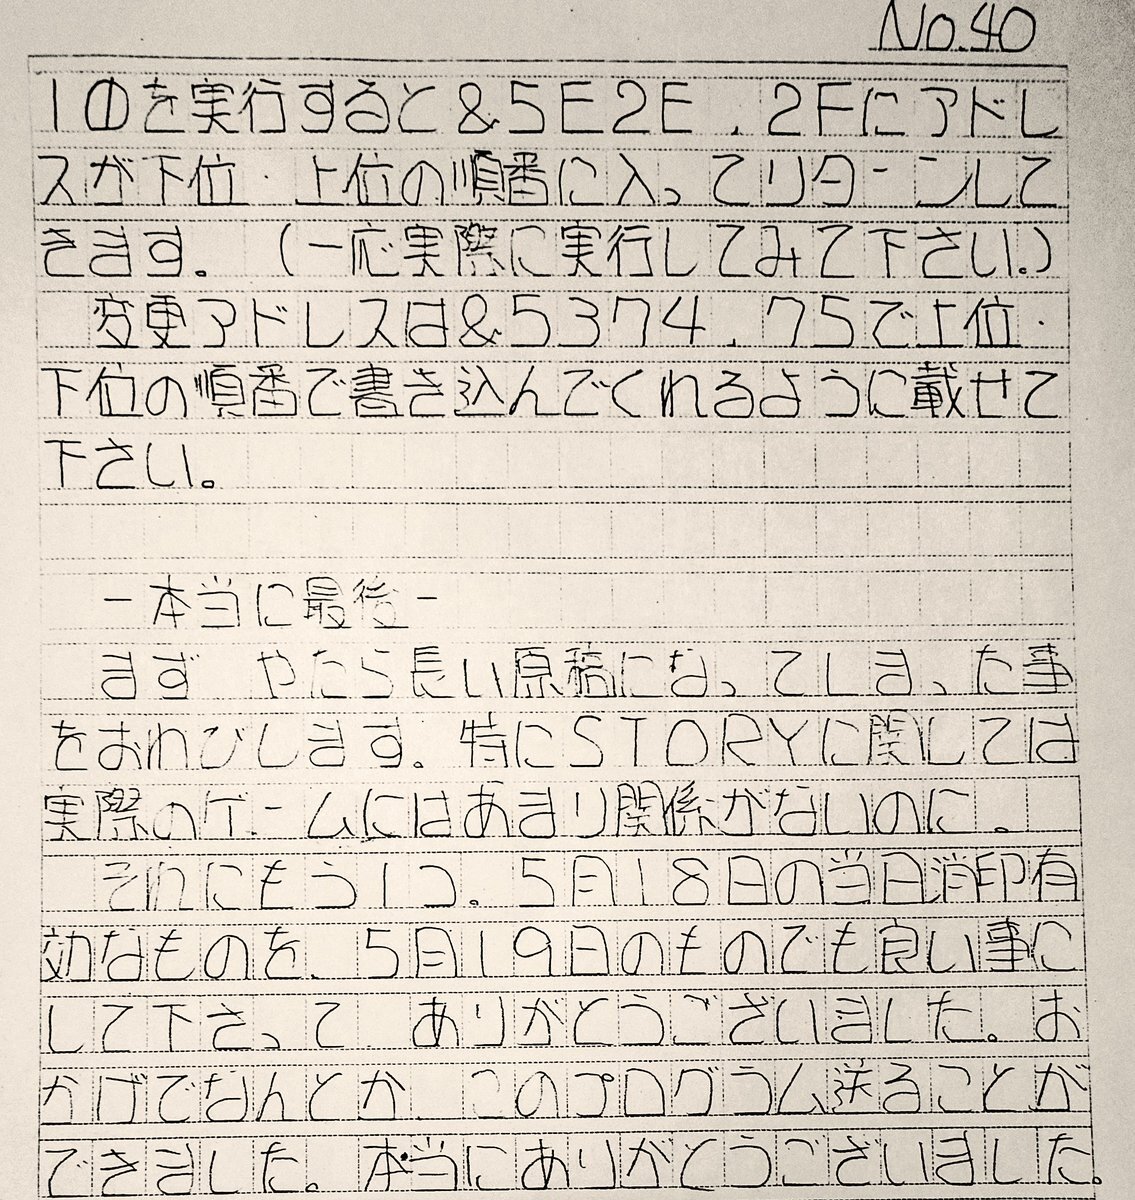 No.40
10を実行すると&5E2E，2Fにアドレ
スが下位・上位の順番に入ってリターンして
きます。（一応実際に実行してみて下さい。）
変更アドレスは&5374，75で上位・
下位の順番で書き込んでくれるように載せて
下さい。
－本当に最後－
まず やたら長い原稿になってしまった事
をおわびします。特にSTORYに関しては
実際のゲームにはあまり関係がないのに。
それにもう1つ。5月18日の当日消印有
効なものを、5月19日のものでも良い事に
して下さって ありがとうございました。お
かげでなんとか このプログラム送ることが
できました。本当にありがとうございました。